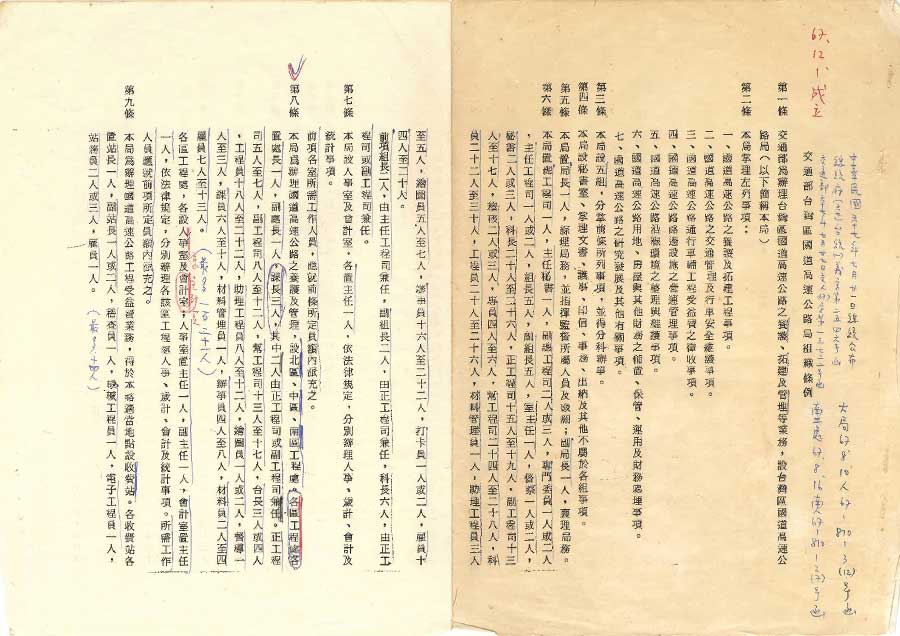 67.12.1.成立
交通部台灣區國道高速公路局組織條例
第一條　交通部為辦理台灣區國道高速公路之養護、拓建及管理等業務，設台灣區國道高速公
路局（以下簡稱本局）
第二條　本局掌理左列事項：
一、國道高速公路之養護及拓建工程事項。
二、國道高速公路之交通管理及行車安全維護事項。
三、國道高速公路通行車輛工程受益費之徵收事項。
四、國道高速公路通訊設施之營運管理事項。
五、國道高速公路沿線環境之整理與維護事項。
六、國道高速公路用地、房屋與其他財務之佈置、保管、運用及財務處理事項。
七、國道高速公路之研究發展及其他有關事項。
第三條　本局設五組，分掌前條所列事項，並得分科辦事。
第四條　本局設秘書室，掌理文書、議事、印信、事務、出納及其他不屬於各組事項。
第五條　本局置局長一人，綜理局務，並指揮監督所屬人員及機關；副局長一人，襄理局務。
第六條　本局置總工程司一人，主任秘書一人，副總工程司二人或三人，專門委員一人或二人
，主任工程司一人或二人，組長五人，副組長五人，室主任一人，督察一人或二人，
秘書二人或三人，科長二十二人至二十六人，正工程司十五人至十九人，副工程司十三
人至十七人，稽核二人或三人，專員四人至六人，幫工程司二十四人至二十八人，科
員二十二人至三十人，工程員二十人至二十六人，材料管理員一人，助理工程員三人
至五人，繪圖員五人至七人，辦事員十六人至二十二人，打卡員一人或二人，雇員十
四人至二十人。
前項組長二人，由主任工程司兼任，副組長二人，由正工程司兼任，科長六人，由正工
程司或副工程司兼任。
第七條　本局設人事室及會計室，各置主任一人，依法律規定，分別辦理人事、歲計、會計及
統計事項。
前項各室所需工作人員，應就前條所定員額內派充之。
第八條　本局為辦理國道高速公路之養護及管理，設北區、中區、南區工程處。各區工程處各
置處長一人，副處長一人，段長三人，其中二人由正工程司或副工程司兼任。正工程
司五人至七人，副工程司八人至十二人，幫工程司十三人至十七人，台長三人或四人
，工程員十八人至二十二人，助理工程員八人至十二人，繪圖員一人或二人，督導一
人至三人，課員六人至十二人，材料管理員一人，辦事員四人至八人，材料員二人至四
雇員七人至十三人。
（最多一百二十一人）
各區工程處，各設人事室及會計室；人事室置主任一人，副主任一人，會計室置主任
一人，依法律規定，分別辦理各該區工程處人事、歲計、會計及統計事項。所需工作
人員應就前項所定員額內派充之。
第九條　本局為辦理國道高速公路工程受益費業務，得於本路適當地點設收費站。各收費站各
置站長一人，副站長一人或二人，稽查員一人，機械工程員一人，電子工程員一人，
站務員二人或三人，雇員一人。
（最多十四人）